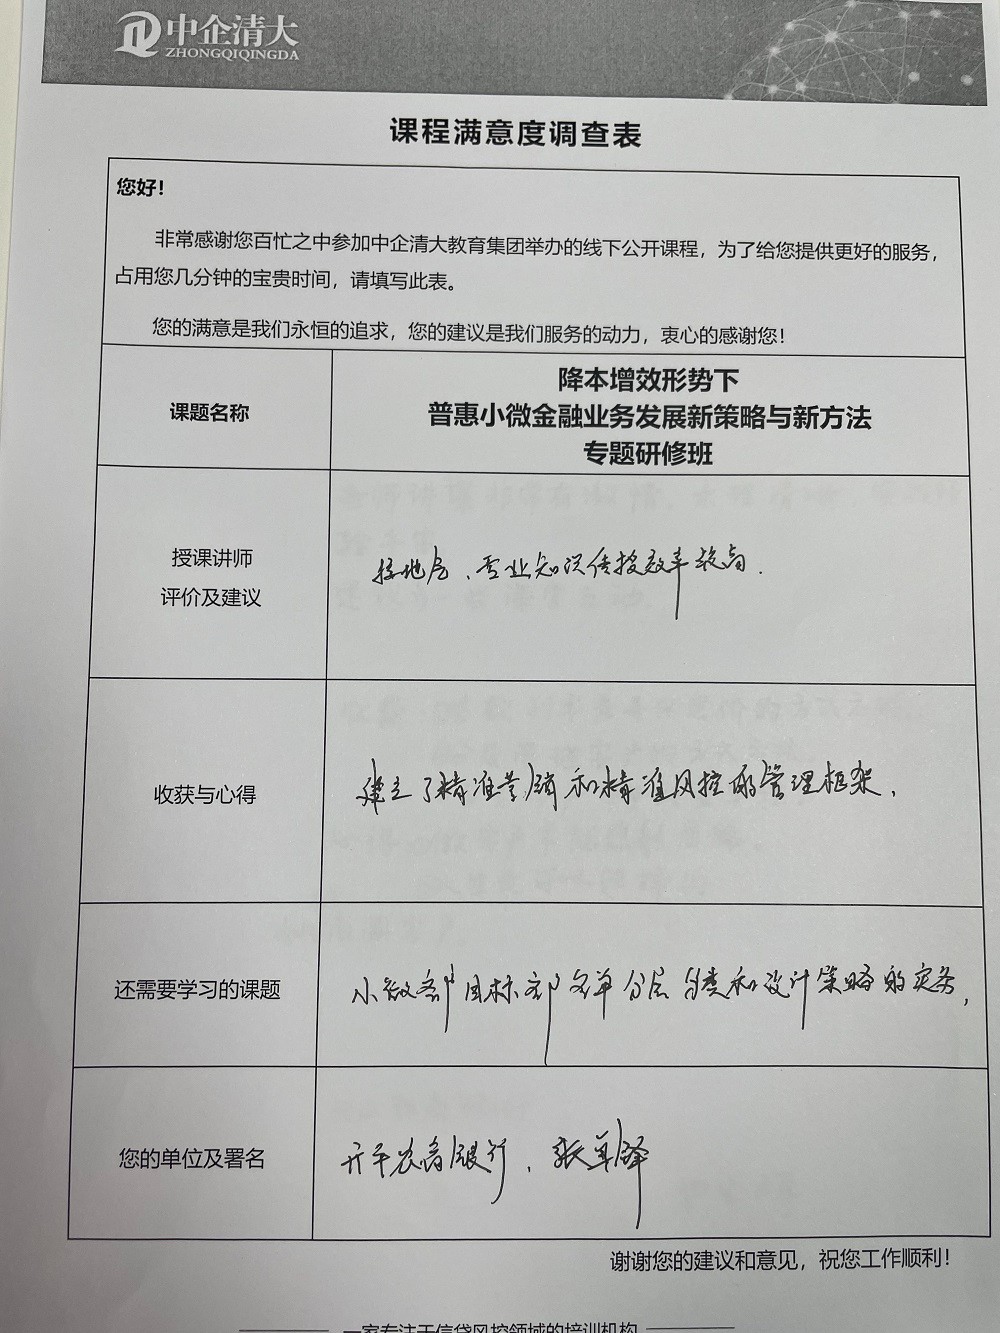 中企清大
ZHONGQIQINGDA
课程满意度调查表
您好！
非常感谢您百忙之中参加中企清大教育集团举办的线下公开课程，为了给您提供更好的服务，
占用您几分钟的宝贵时间，请填写此表。
您的满意是我们永恒的追求，您的建议是我们服务的动力，衷心的感谢您！
课题名称
降本增效形势下
普惠小微金融业务发展新策略与新方法
专题研修班
授课讲师
评价及建议
接地气、专业知识传授效率较高.
收获与心得
建立了精准营销和精准风控的管理框架,
还需要学习的课题
小微部目标部名单分层分类和设计策略的实务,
您的单位及署名
开平农商银行、张
谢谢您的建议和意见，祝您工作顺利！
一家专注于信贷风控领域的培训机构